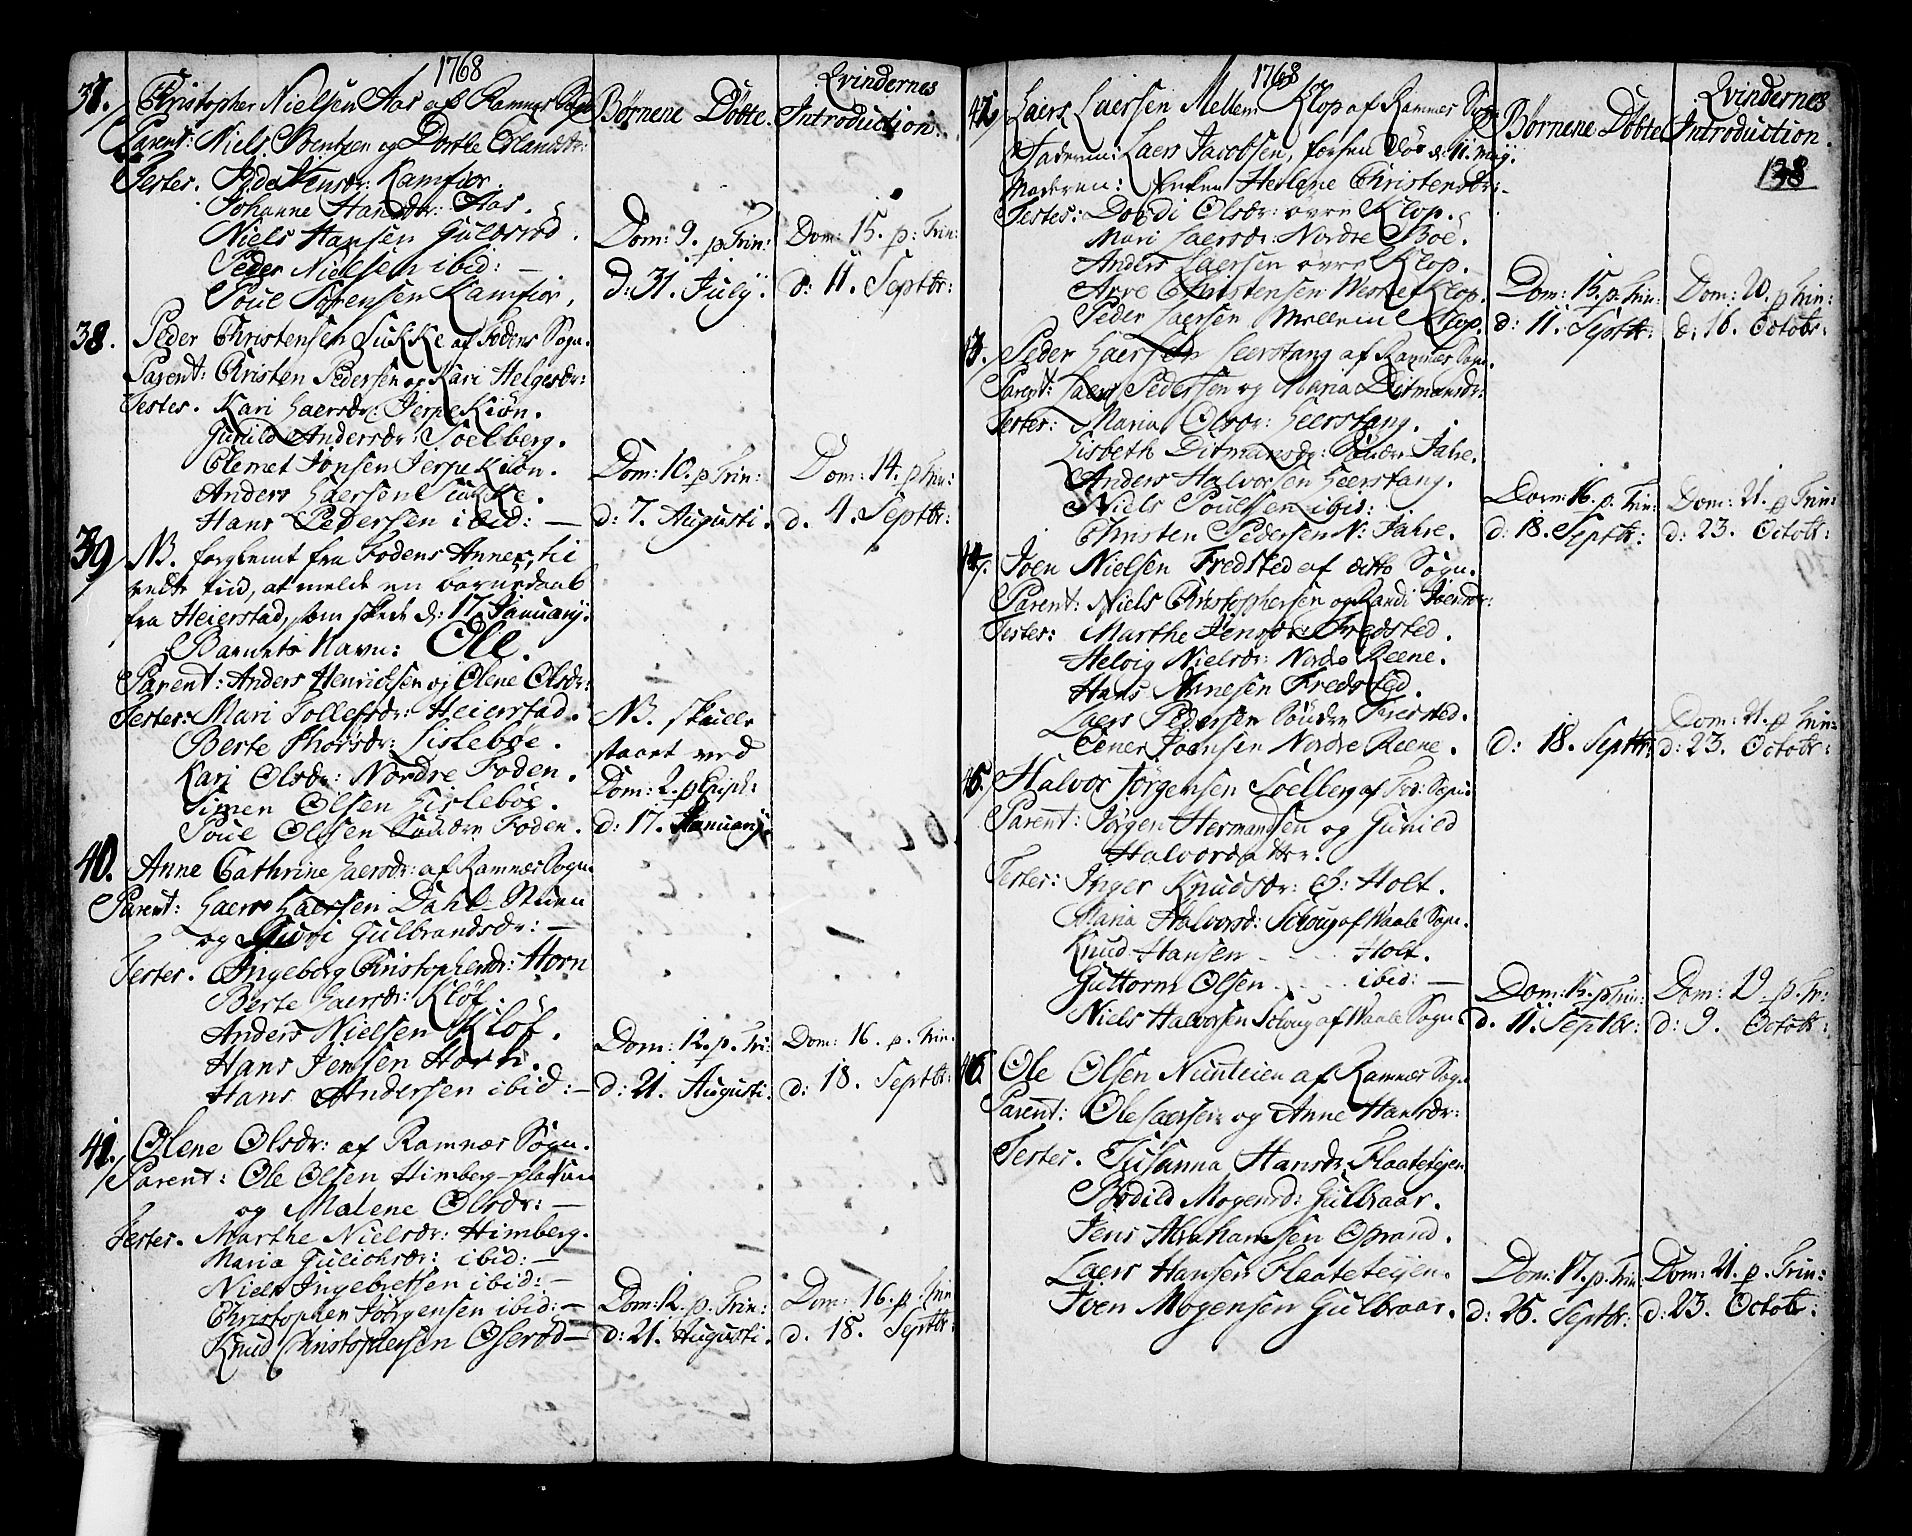 1768
Qvindernes
37. Christopher Nielsen Aas af Ramnæs Sogn
Børnene Døbte. Introduction.
Parent: Niels Bentsen og Dorthe Erlandsdr:
Testes. Jensdr: Kamfior.
Johanne Hansdr: Aas.
Niels Hansen Gulsrød.
Dom: 9. p. Trin: Dom: 15. p: Trin:
Peder Nielsen ibid: —
Poul Sørensen Kamfior.
d: 31. July. d: 11. Septbr:
38. Peder Christensen Sukke af Fodens Sogn.
Parent: Christen Pedersen og Kari Helgesdr:
Testes. Kari Laersdr: Jerpekiøn.
Gunild Andersdr: Soelberg.
Clemet Jonsen Jerpekiøn.
Dom: 10. p Trin: Dom: 14. p Trin:
Anders Laersen Sukke.
Hans Pedersen ibid: —
d: 7. Augusti. d. 4. Septbr:
39. NB. forglemt fra Fodens Annex, til
rette tid, at melde en barnedaab
fra Heierstad, som skede d: 17. January:
Barnets Navn: Ole.
Parent: Anders Henrichsen og Olene Olsdr:
Testes: Mari Tollefsdr: Heierstad.
NB. skulle
Berte Thorsdr: Lisleboe.
staaet ved
Kari Olsdr: Nordre Foden.
Dom: 2. p Epiph:
Simen Olsen Lisleboe.
Poul Olsen Søndre Foden.
d: 17. January.
40. Anne Cathrine Laersdr: af Ramnæs Sogn.
Parent: Laers Laersen Dahl-Stuen
og Guri Gulbrandsdr: —
Testes. Ingeborg Christophersdr: Horn
Berte Laersdr: Kløf.
Anders Nielsen Kløf.
Hans Jensen Horn.
Dom: 12. p. Tri: Dom: 16. p. Trin:
Hans Andersen ibid: —
d: 21. Augusti: d: 18. Septbr:
41. Olene Olsdr: af Ramnæs Sogn.
Parent: Ole Olsen Himberg-pladsen
og Malene Olsdr: —
Testes. Marthe Nielsdr: Himberg.
Maria Gulichsdr: ibid: —
Niels Ingebretsen ibid: —
Christopher Jørgensen ibid: —
Dom: 12. p. Trin: Dom: 16. p. Trin
Knud Christophersen Oserød —
d: 21. Augusti. d. 18. Septbr:
1768
Qvindernes
42. Laers Laersen Mellem Klop af Ramnes Sogn
Børnene Døbte Introduction.
Faderen: Laers Jacobsen, forhen død d: 11. May.
138
Moderen: Enken Helene Christensdr: —
Testes: Dordi Olsdr: øvre Klop.
Mari Laersdr: Nordre Boe.
Anders Laersen øvre Klop.
Arre Christensen Westre Klop.
Dom: 15. p. Trin: Dom: 20. p Trin:
Peder Laersen Mellem Klop.
d: 11. Septbr: d: 16. Octobr:
43. Peder Laersen Leerstang af Ramnes Sogn.
Parent: Laers Pedersen og Maria Ditmansdr:
Testes: Maria Olsdr: Leerstang.
Lisbeth Ditmansdr: Søndre Jahre.
Anders Halvorsen Leerstang.
Niels Poulsen ibid:
Dom: 16. p. Trin: Dom: 21. p Trin:
Christen Pedersen N: Jahre.
d: 18. Septbr: d: 23. Octobr:
44. Joen Nielsen Fredsted af ditto Sogn.
Parent: Niels Christophersen og Randi Joensdr:
Testes: Marthe Jensdr: Fredsted.
Helvig Nielsdr: Nordre Reene.
Hans Arnesen Fredsted.
Laers Pedersen Søndre Fredsted.
Dom: 21. p Trin:
Eener Joensen Nordre Reene.
d: 18. Septbr: d: 23. Octobr:
45. Halvor Jørgensen Soelberg af Fod: Sogn:
Parent: Jørgen Hermandsen og Gunild
Halvorsdatter.
Testes: Inger Knudsdr: Holt.
Maria Halvorsd: Solvug af Waale Sogn.
Knud Hansen - - - Holt.
Guttorm Olsen - - - ibid: —
Dom: 15. p Trin: Dom: 19. p. Tr:
Niels Halvorsen Solvug af Waale Sogn.
d. 11. Septbr: d: 9. Octobr:
46. Ole Olsen Nunteien af Ramnæs Sogn
Parent: Ole Laersen og Anne Hansdr:
Testes. Susanna Hansdr: Flaateteien
Bodild Mogensd: Gulbraar.
Jens Abrahamsen Oprand.
Laers Hansen Flaateteigen.
Dom: 17. p. Trin Dom: 21. p. Trin:
Joen Mogensen Gulbraar.
d: 25. Septbr: d: 23. Octobr: